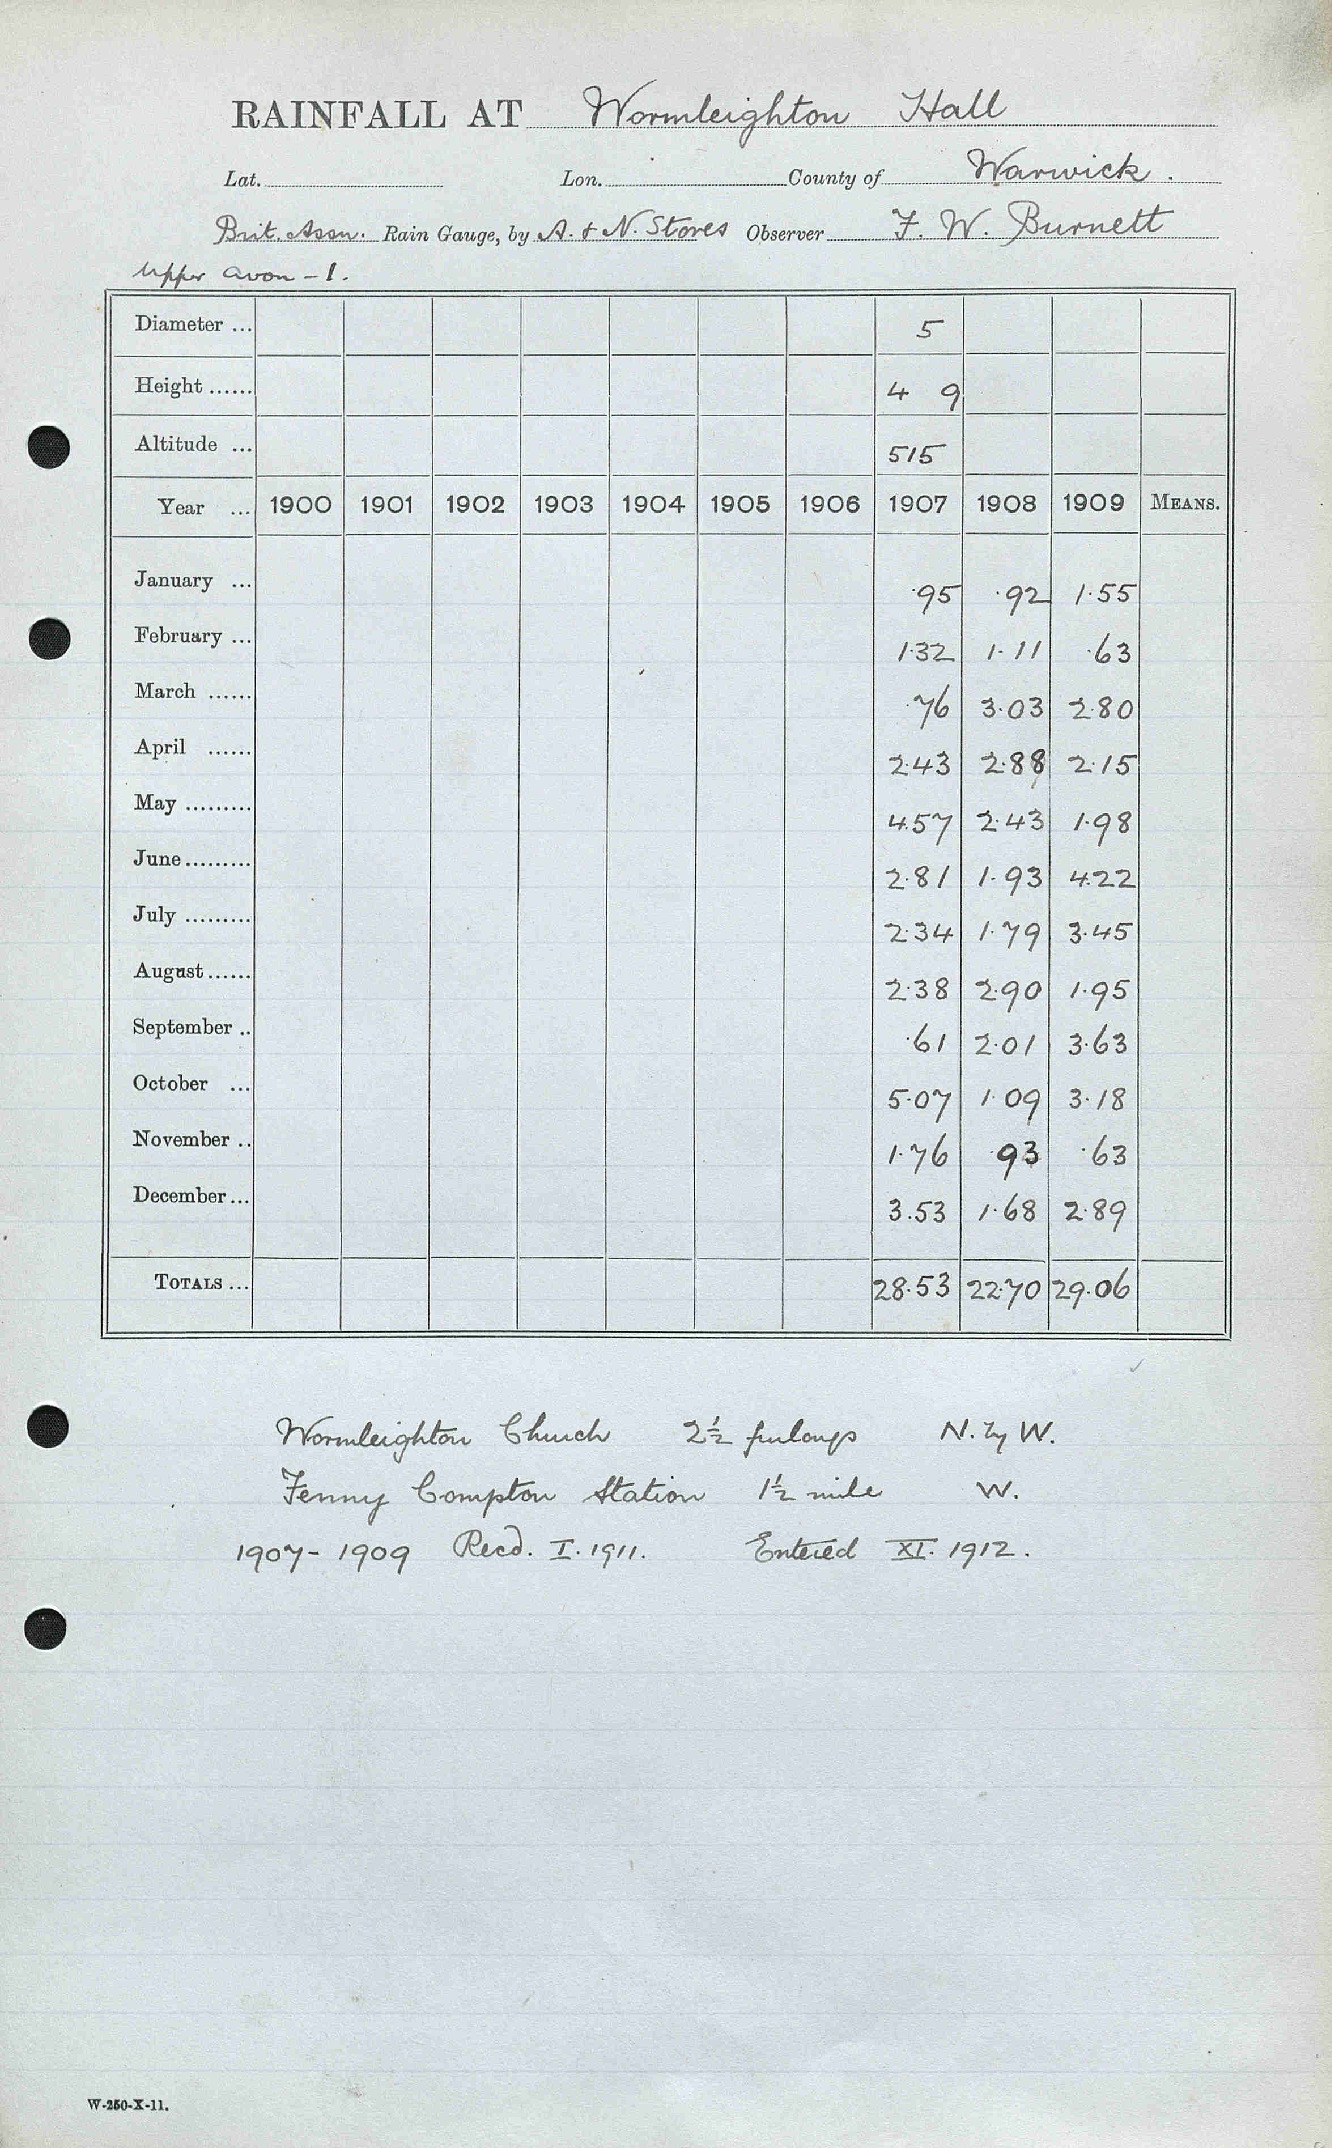 RAINFALL AT Wormleighton Hall
Lat. Lon. County of Warwick.
Brit. Assn. Rain Gauge, by A. & N. Stores Observer F. W. Burnett
Upper Avon - 1.
Diameter ... 5
Height ...... 4 9
Altitude ... 515
Year ... 1900 1901 1902 1903 1904 1905 1906 1907 1908 1909 MEANS.
January ... ·95 ·92 1·55
February ... 1·32 1·11 ·63
March ...... ·76 3·03 2·80
April ...... 2·43 2·88 2·15
May ......... 4·57 2·43 1·98
June ......... 2·81 1·93 4·22
July ......... 2·34 1·79 3·45
August ...... 2·38 2·90 1·95
September .. ·61 2·01 3·63
October ... 5·07 1·09 3·18
November .. 1·76 ·93 ·63
December ... 3·53 1·68 2·89
TOTALS ... 28·53 22·70 29·06
Wormleighton Church 2½ furlongs N. by W.
Fenny Compton Station 1½ mile W.
1907- 1909 Recd. I. 1911. Entered XI. 1912.
W-250-X-11.